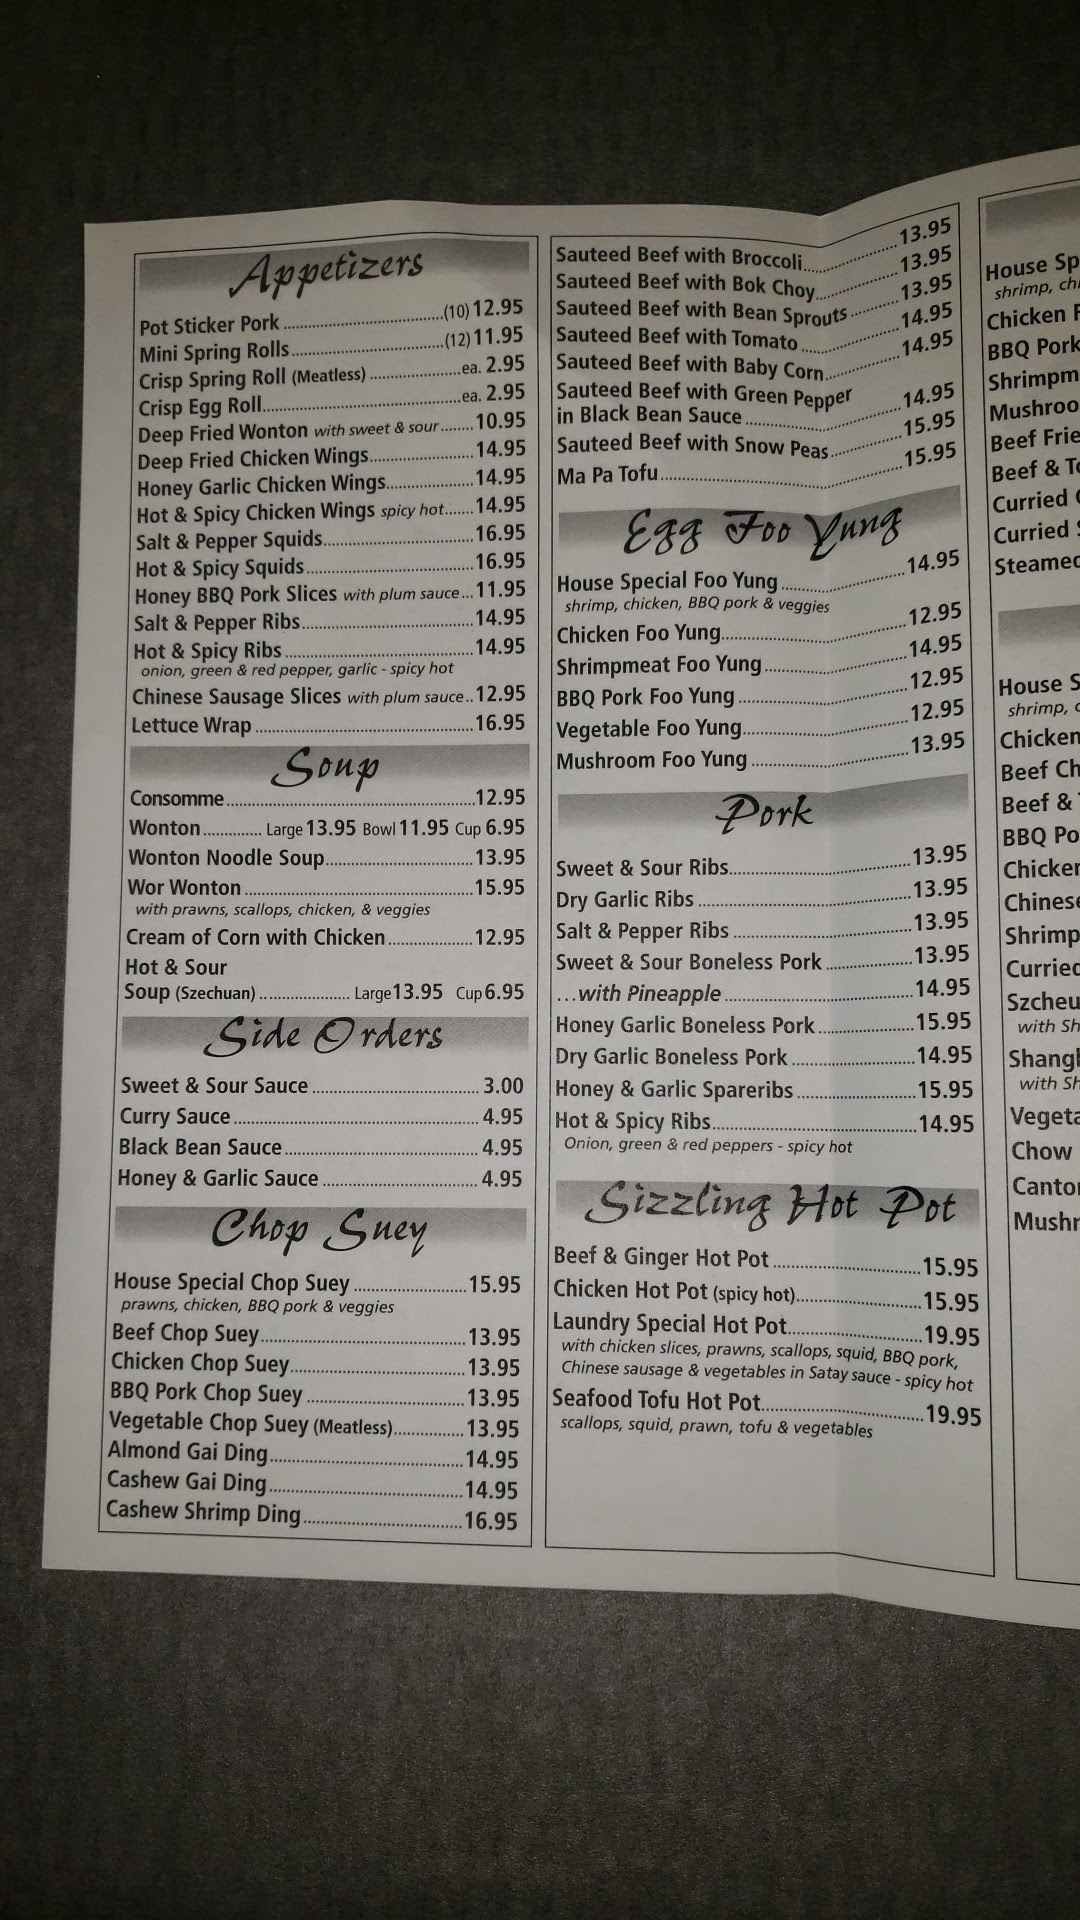 Appetizers
Pot Sticker Pork (10) 12.95
Mini Spring Rolls (12) 11.95
Crisp Spring Roll (Meatless) ea. 2.95
Crisp Egg Roll ea. 2.95
Deep Fried Wonton with sweet & sour 10.95
Deep Fried Chicken Wings 14.95
Honey Garlic Chicken Wings 14.95
Hot & Spicy Chicken Wings spicy hot 14.95
Salt & Pepper Squids 16.95
Hot & Spicy Squids 16.95
Honey BBQ Pork Slices with plum sauce 11.95
Salt & Pepper Ribs 14.95
Hot & Spicy Ribs 14.95
onion, green & red pepper, garlic - spicy hot
Chinese Sausage Slices with plum sauce 12.95
Lettuce Wrap 16.95
Soup
Consomme 12.95
Wonton Large 13.95 Bowl 11.95 Cup 6.95
Wonton Noodle Soup 13.95
Wor Wonton 15.95
with prawns, scallops, chicken, & veggies
Cream of Corn with Chicken 12.95
Hot & Sour
Soup (Szechuan) Large 13.95 Cup 6.95
Side Orders
Sweet & Sour Sauce 3.00
Curry Sauce 4.95
Black Bean Sauce 4.95
Honey & Garlic Sauce 4.95
Chop Suey
House Special Chop Suey 15.95
prawns, chicken, BBQ pork & veggies
Beef Chop Suey 13.95
Chicken Chop Suey 13.95
BBQ Pork Chop Suey 13.95
Vegetable Chop Suey (Meatless) 13.95
Almond Gai Ding 14.95
Cashew Gai Ding 14.95
Cashew Shrimp Ding 16.95
Sauteed Beef with Broccoli 13.95
Sauteed Beef with Bok Choy 13.95
Sauteed Beef with Bean Sprouts 13.95
Sauteed Beef with Tomato 14.95
Sauteed Beef with Baby Corn 14.95
Sauteed Beef with Green Pepper
in Black Bean Sauce 14.95
Sauteed Beef with Snow Peas 15.95
Ma Pa Tofu 15.95
Egg Foo Yung
House Special Foo Yung 14.95
shrimp, chicken, BBQ pork & veggies
Chicken Foo Yung 12.95
Shrimpmeat Foo Yung 14.95
BBQ Pork Foo Yung 12.95
Vegetable Foo Yung 12.95
Mushroom Foo Yung 13.95
Pork
Sweet & Sour Ribs 13.95
Dry Garlic Ribs 13.95
Salt & Pepper Ribs 13.95
Sweet & Sour Boneless Pork 13.95
...with Pineapple 14.95
Honey Garlic Boneless Pork 15.95
Dry Garlic Boneless Pork 14.95
Honey & Garlic Spareribs 15.95
Hot & Spicy Ribs 14.95
Onion, green & red peppers - spicy hot
Sizzling Hot Pot
Beef & Ginger Hot Pot 15.95
Chicken Hot Pot (spicy hot) 15.95
Laundry Special Hot Pot 19.95
with chicken slices, prawns, scallops, squid, BBQ pork,
Chinese sausage & vegetables in Satay sauce - spicy hot
Seafood Tofu Hot Pot 19.95
scallops, squid, prawn, tofu & vegetables
House Sp
shrimp, ch
Chicken F
BBQ Pork
Shrimpm
Mushroo
Beef Frie
Beef & To
Curried
Curried
Steamed
House S
shrimp, c
Chicken
Beef Ch
Beef &
BBQ Po
Chicken
Chinese
Shrimp
Curried
Szcheu
with Sh
Shangh
with Sh
Vegeta
Chow
Canton
Mushr